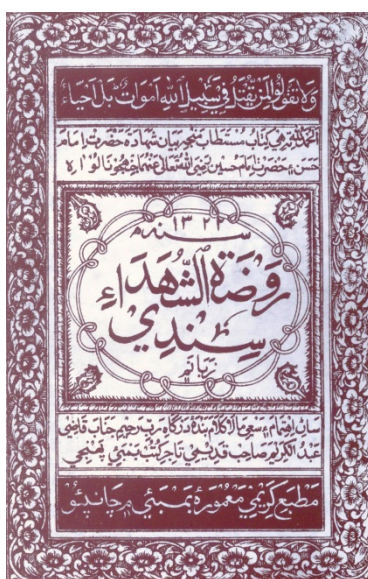 ولا تقولوا لمن يقتل في سبيل الله اموات بل احياء
الحمد لله هي كتاب مستطاب منجھ بيان شهادة حضرت امام
حسن ۽ حضرت امام حسين رضي الله تعالى عنهما جي
سنه ١٣٢٢
روضة الشهداء
سنڌي
سان اهتمام ۽ سعي بالاكلام بنده درگاه رب رحيم جناب قاضي
عبدالكريم صاحب قديمي تاجر كتب بمبئي
مطبع كريمي معموره بمبئي ۾ ڇاپيو